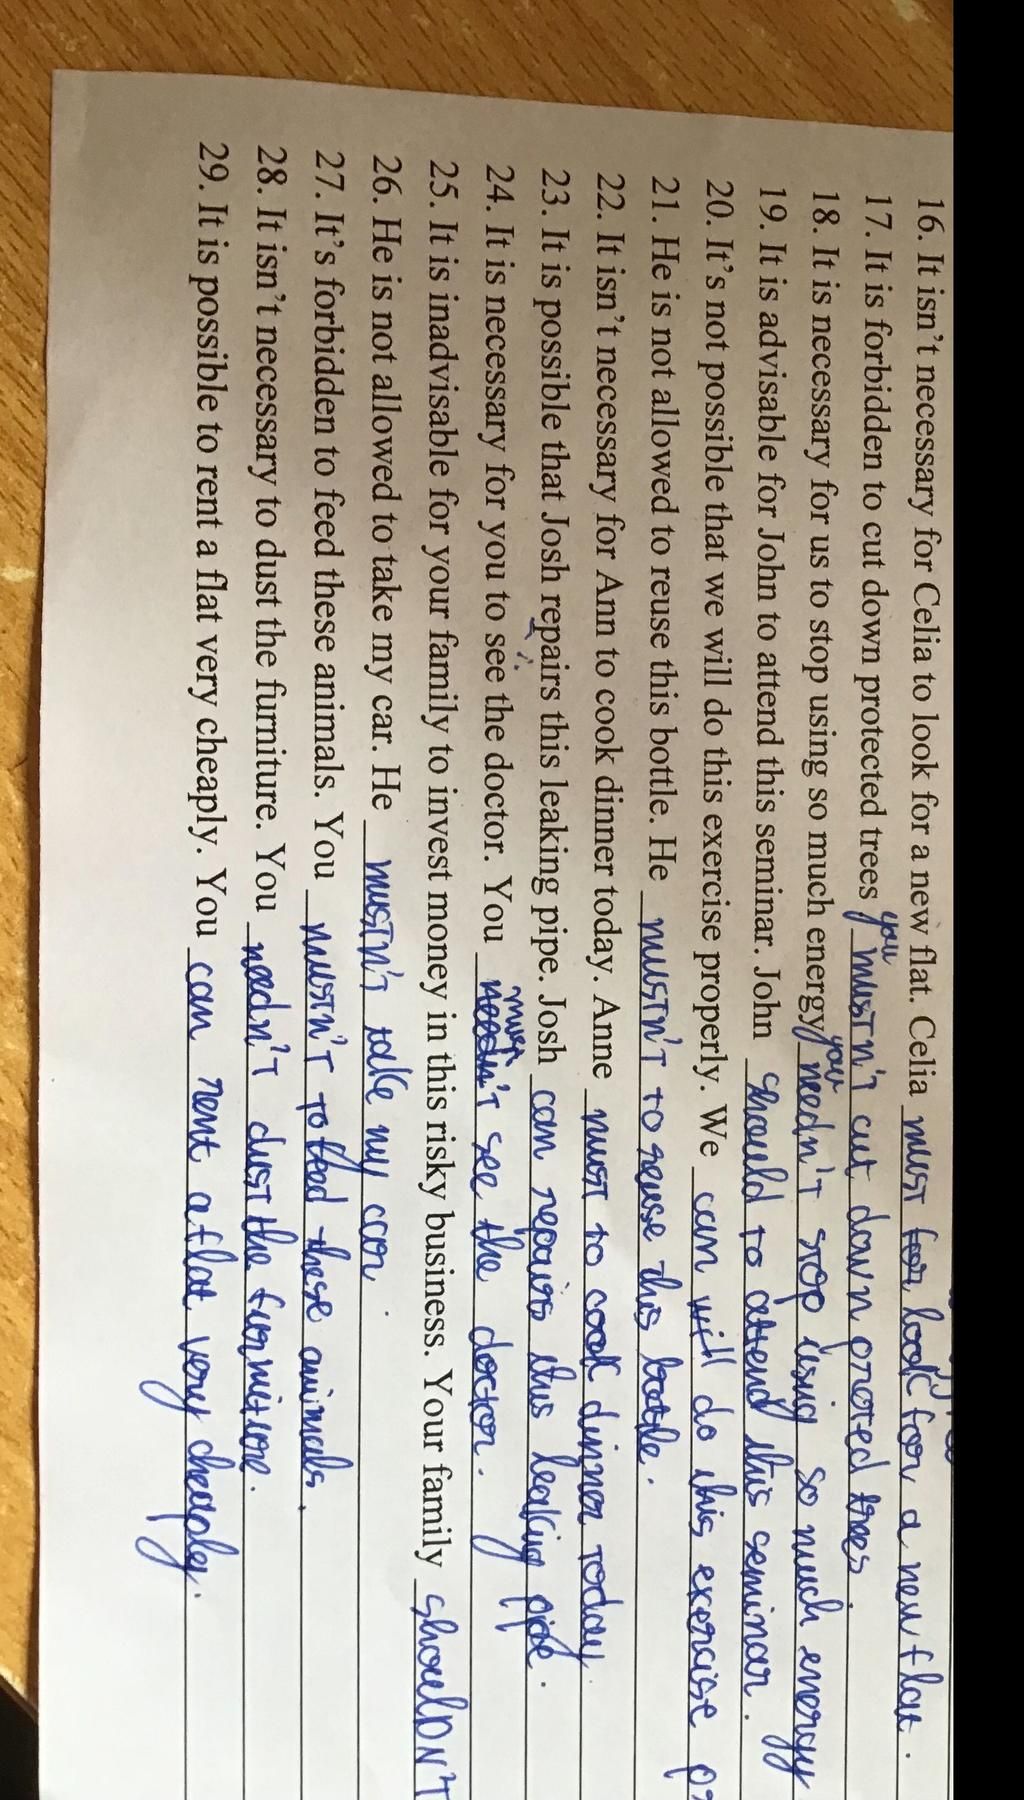 16. It isn't necessary for Celia to look for a new flat. Celia must for look for a new flat.
17. It is forbidden to cut down protected trees you mustn't cut down proted trees.
18. It is necessary for us to stop using so much energy you needn't stop using so much energy
19. It is advisable for John to attend this seminar. John should to attend this seminar.
20. It's not possible that we will do this exercise properly. We can will do this exercise
21. He is not allowed to reuse this bottle. He mustn't to reuse this bottle.
22. It isn't necessary for Ann to cook dinner today. Anne must to cook dinner today
23. It is possible that Josh repairs this leaking pipe. Josh can repairs this leaking pipe.
24. It is necessary for you to see the doctor. You must see the doctor.
25. It is inadvisable for your family to invest money in this risky business. Your family shouldn't
26. He is not allowed to take my car. He mustn't take my car.
27. It's forbidden to feed these animals. You mustn't to feed these animals.
28. It isn't necessary to dust the furniture. You needn't dust the furniture.
29. It is possible to rent a flat very cheaply. You can rent a flat very cheaply.